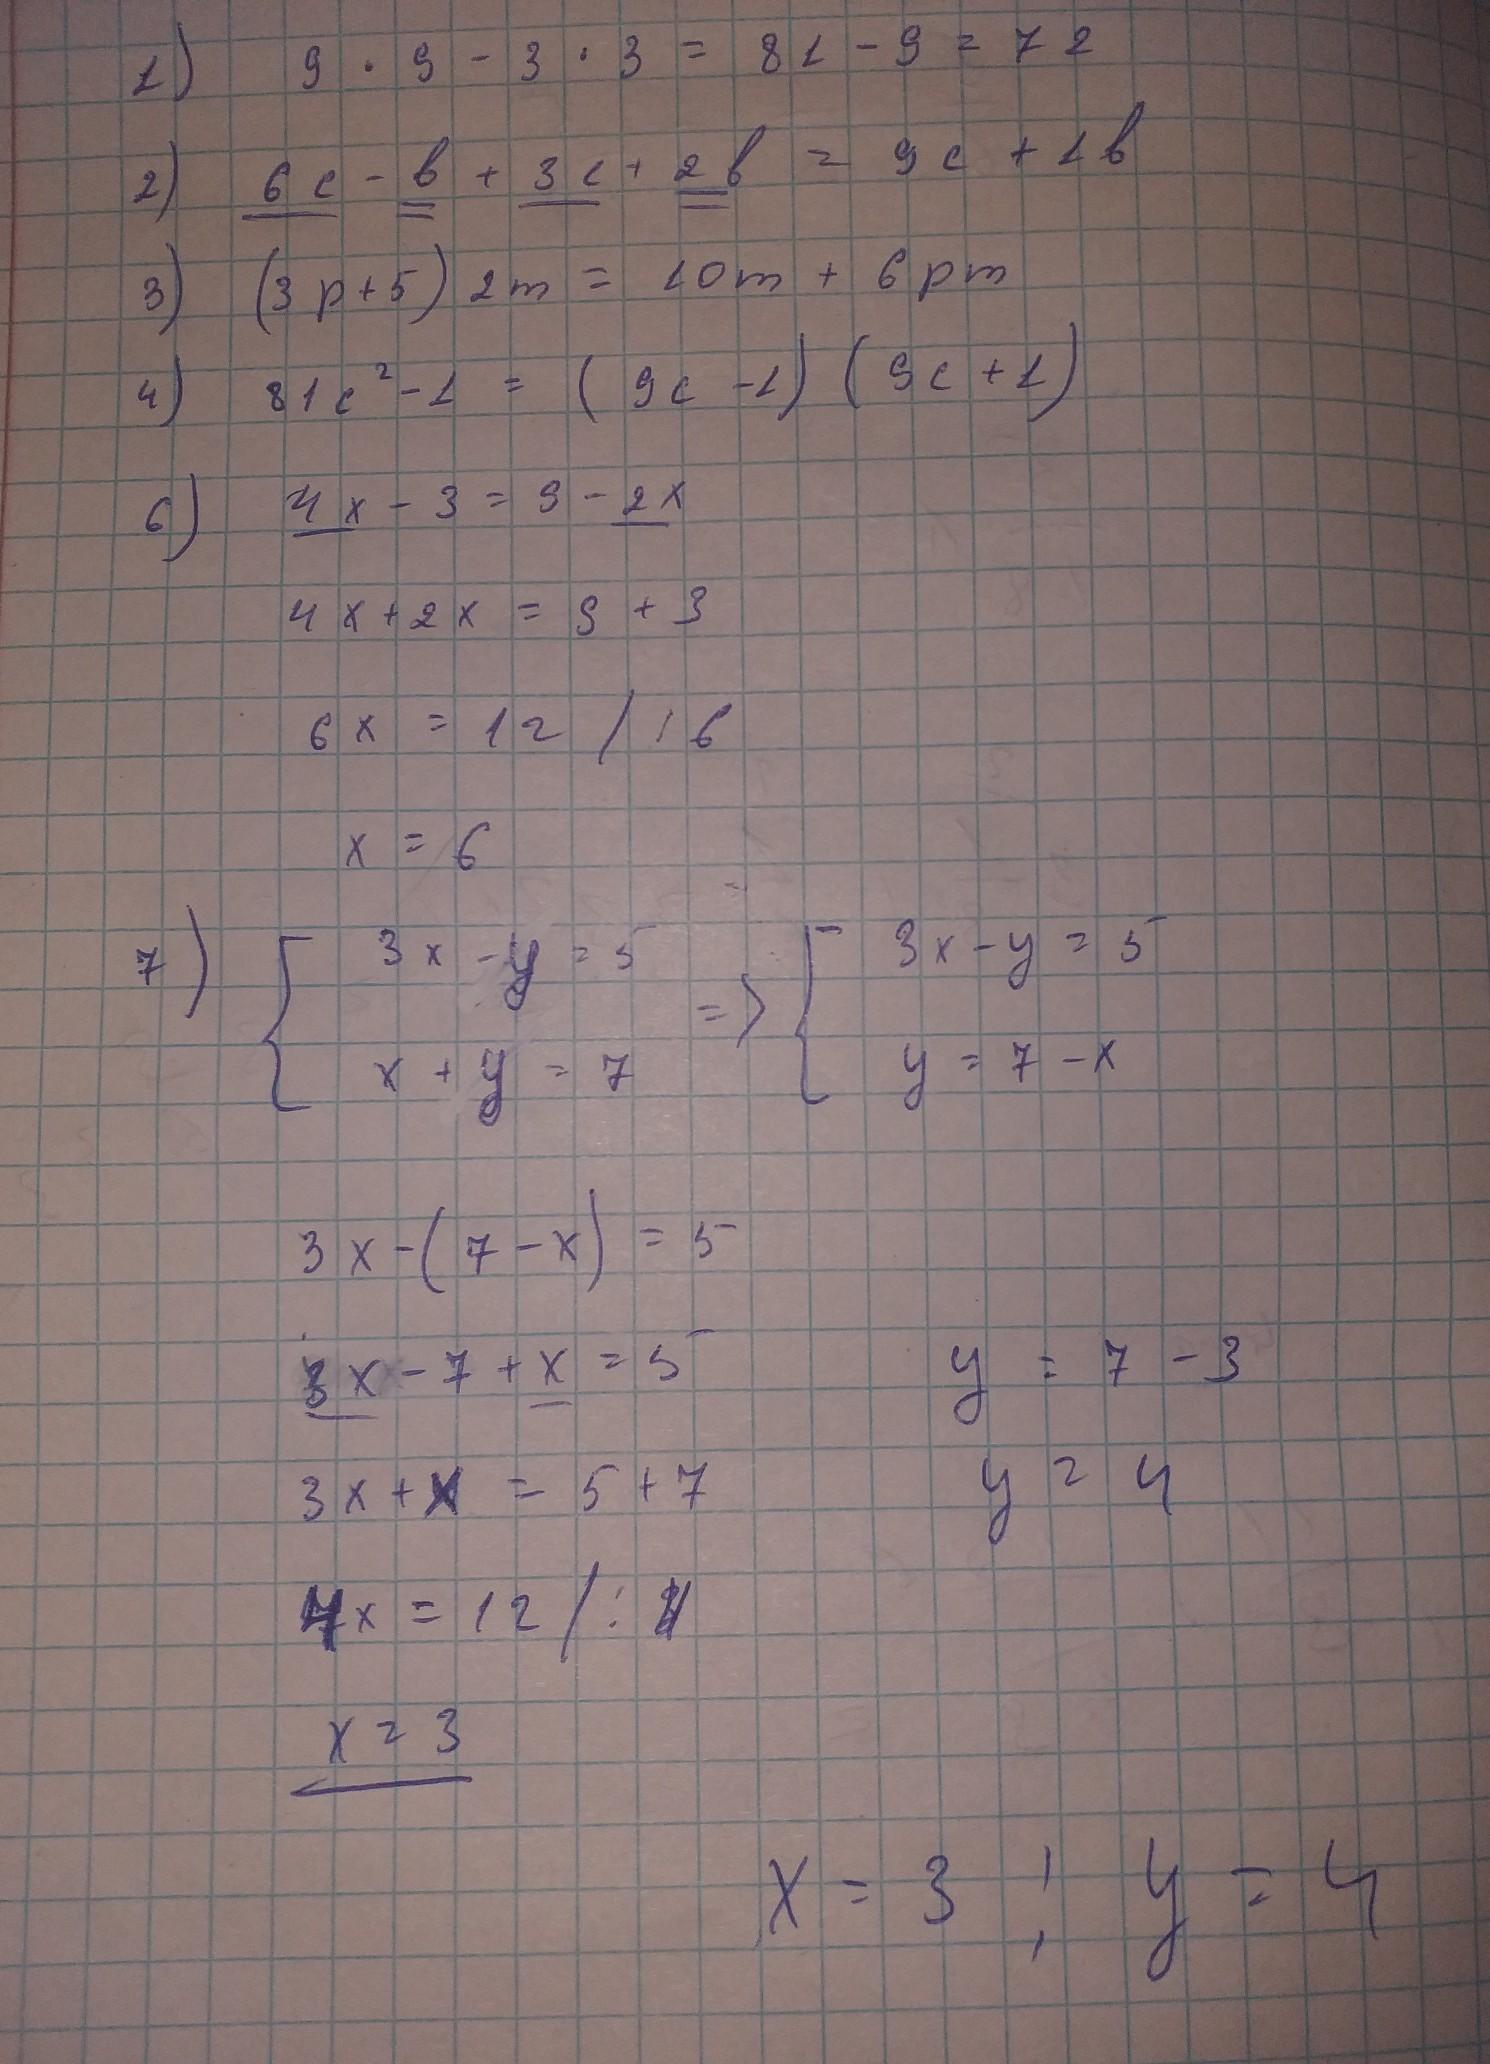 1) 9 · 9 - 3 · 3 = 81 - 9 = 72
2) 6c - b + 3c + 2b = 9c + 1b
3) (3p+5) 2m = 10m + 6pm
4) 81c² - 1 = (9c - 1) (9c + 1)
6) 4x - 3 = 9 - 2x
4x + 2x = 9 + 3
6x = 12 / : 6
x = 6
7) { 3x - y = 5 => { 3x - y = 5
x + y = 7 y = 7 - x
3x - (7 - x) = 5
3x - 7 + x = 5 y = 7 - 3
3x + x = 5 + 7 y = 4
4x = 12 / : 4
x = 3
x = 3 ; y = 4